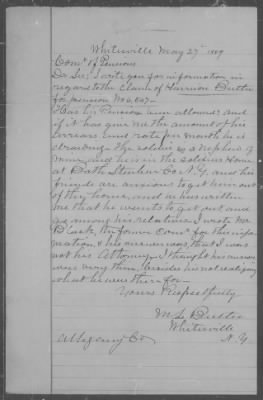 Whitesville May 27th 1889
Com of Pensions
Dr Sir; I write you for information in
regard to the claim of Harmon Dutton
for pension No 6,
Has his Pension been allowed? and
if it has give me the amount of his
arrears and rate per month he is
drawing. The soldier is a nephew of
mine and he is in the soldiers Home
at Bath Steuben Co N.Y. and his
friends are anxious to get him out
of the home, and he has written
me that he wants to get out and
go among his relations. I wrote Mr
Black, the former Com for this infor
mation, & his answer was, that I was
not his Attorney. I thought his answer
was very thin. besides his not realizing
what he was there for.
Yours Respectfully
M. L. Dutton
Whitesville
Allegany Co N.Y.